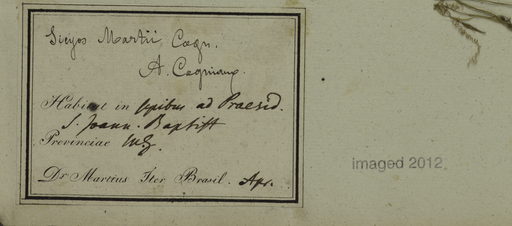 Sicyos Martii, Cogn.
A. Cogniaux
Habitat in sepibus ad Praesid.
S. Joann. Baptist
Provinciae
Dr Martius Iter Brasil. Apr.
imaged 2012